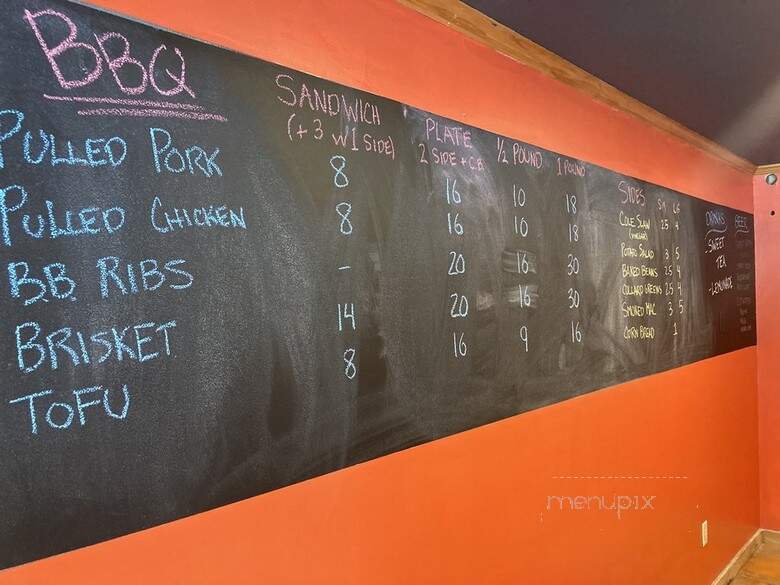 BBQ SANDWICH PLATE ½ POUND 1 POUND
(+ 3 w/ 1 SIDE) 2 SIDE + C.B.
PULLED PORK 8 16 10 18
PULLED CHICKEN 8 16 10 18
BB RIBS - 20 16 30
BRISKET 14 20 16 30
TOFU 8 16 9 16
SIDES SM LG
COLE SLAW 2.5 4
POTATO SALAD 3 5
BAKED BEANS 2.5 4
COLLARD GREENS 2.5 4
SMOKED MAC 3 5
CORN BREAD 1
DRINKS
-SWEET
TEA
-LEMONADE
BEER
menupix